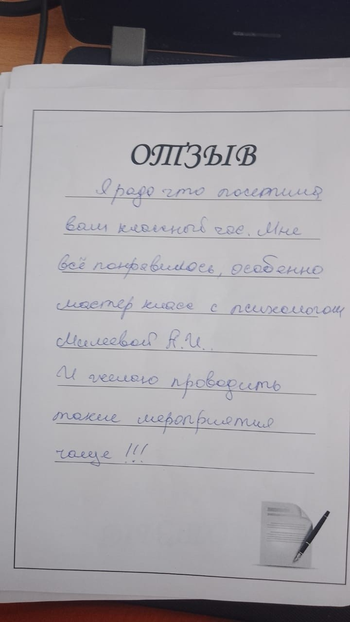 ОТЗЫВ
Я рада что посетила
ваш классный час. Мне
всё понравилось, особенно
мастер класс с психологом
Милеевой А.И.
И желаю проводить
такие мероприятия
чаще !!!